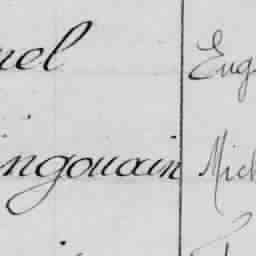 uel Eug
ingouain Mich